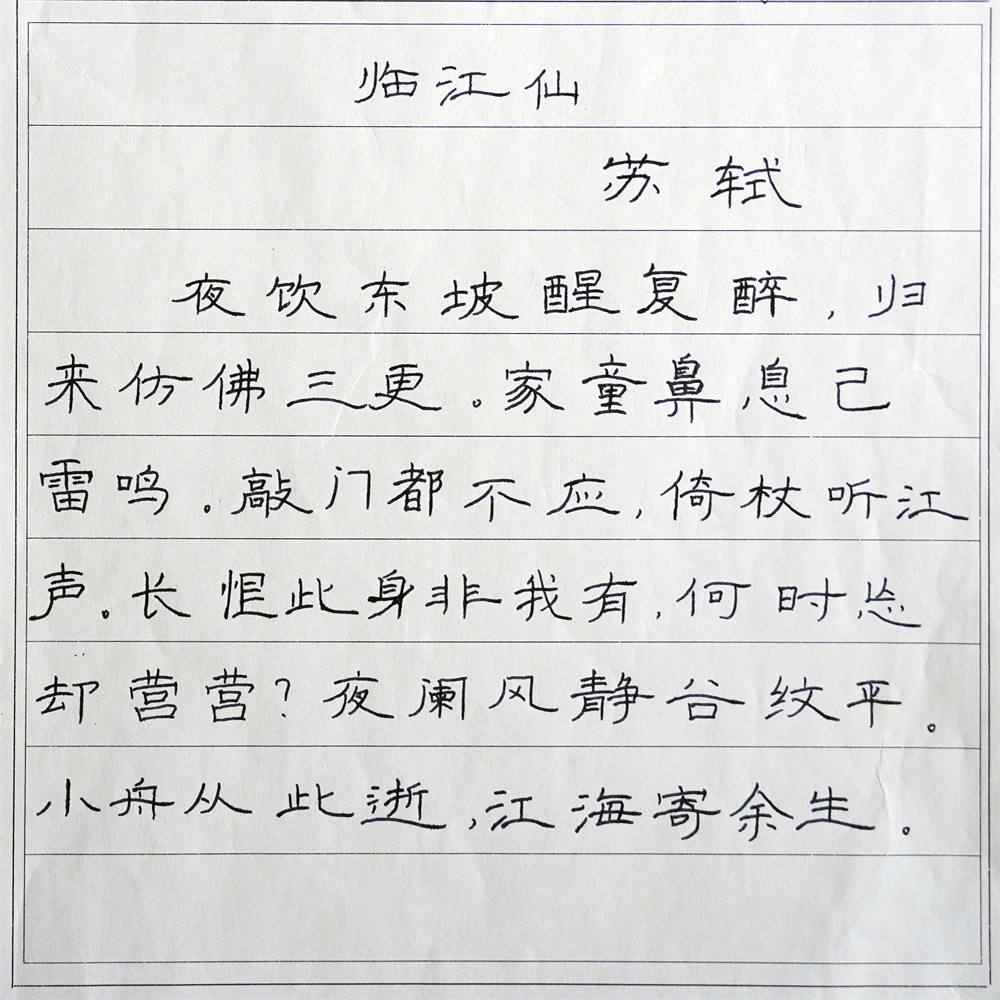 临江仙
苏轼
夜饮东坡醒复醉，归
来仿佛三更。家童鼻息己
雷鸣。敲门都不应，倚杖听江
声。长恨此身非我有，何时忘
却营营？夜阑风静谷纹平。
小舟从此逝，江海寄余生。